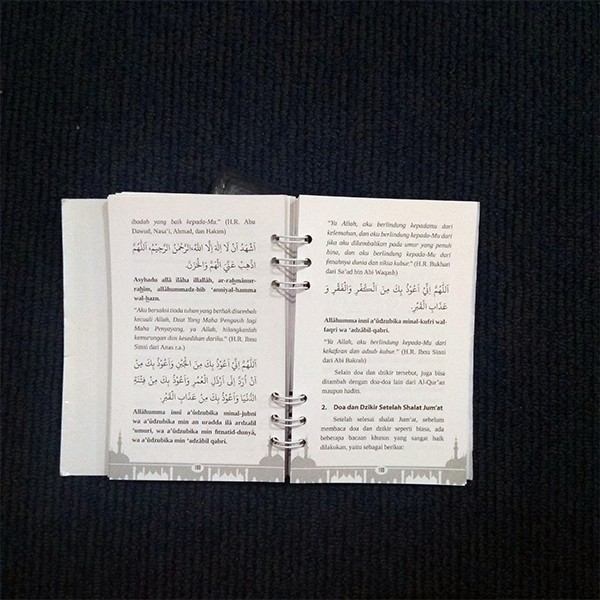 ibadah yang baik kepada-Mu." (H.R. Abu
Dawud, Nasa'i, Ahmad, dan Hakim)
أَشْهَدُ أَنْ لَا إِلٰهَ إِلَّا اللهُ الرَّحْمٰنُ الرَّحِيْمُ، اَللّٰهُمَّ
اذْهِبْ عَنِّيَ الْهَمَّ وَالْحَزَنَ.
Asyhadu allâ ilâha illallâh, ar-rahmânur-
rahîm, allâhummadz-hib 'anniyal-hamma
wal-hazn.
"Aku bersaksi tiada tuhan yang berhak disembah
kecuali Allah, Dzat Yang Maha Pengasih lagi
Maha Penyayang, ya Allah, hilangkanlah
kemurungan dan kesedihan dariku." (H.R. Ibnu
Sinni dari Anas r.a.)
اَللّٰهُمَّ إِنِّيْ أَعُوْذُ بِكَ مِنَ الْجُبْنِ وَأَعُوْذُ بِكَ مِنْ
أَنْ أُرَدَّ إِلَى أَرْذَلِ الْعُمُرِ وَأَعُوْذُ بِكَ مِنْ فِتْنَةِ
الدُّنْيَا وَأَعُوْذُ بِكَ مِنْ عَذَابِ الْقَبْرِ.
Allâhumma innî a'ûdzubika minal-jubni
wa a'ûdzubika min an uradda ilâ ardzalil
'umuri, wa a'ûdzubika min fitnatid-dunyâ,
wa a'ûdzubika min 'adzâbil qabri.
"Ya Allah, aku berlindung kepadamu dari
kelemahan, dan aku berlindung kepada-Mu dari
jika aku dikembalikan pada umur yang penuh
hina, dan aku berlindung kepada-Mu dari
fitnahnya dunia dan siksa kubur." (H.R. Bukhari
dari Sa'ad bin Abi Waqash)
اَللّٰهُمَّ إِنِّيْ أَعُوْذُ بِكَ مِنَ الْكُفْرِ وَالْفَقْرِ وَ
عَذَابِ الْقَبْرِ.
Allâhumma innî a'ûdzubika minal-kufri wal-
faqri wa 'adzâbil-qabri.
"Ya Allah, aku berlindung kepada-Mu dari
kekafiran dan adzab kubur." (H.R. Ibnu Sinni
dari Abi Bakrah)
Selain doa dan dzikir tersebut, juga bisa
ditambah dengan doa-doa lain dari Al-Qur'an
maupun hadits.
2. Doa dan Dzikir Setelah Shalat Jum'at
Setelah selesai shalat Jum'at, sebelum
membaca doa dan dzikir seperti biasa, ada
beberapa bacaan khusus yang sangat baik
dilakukan, yaitu sebagai berikut: